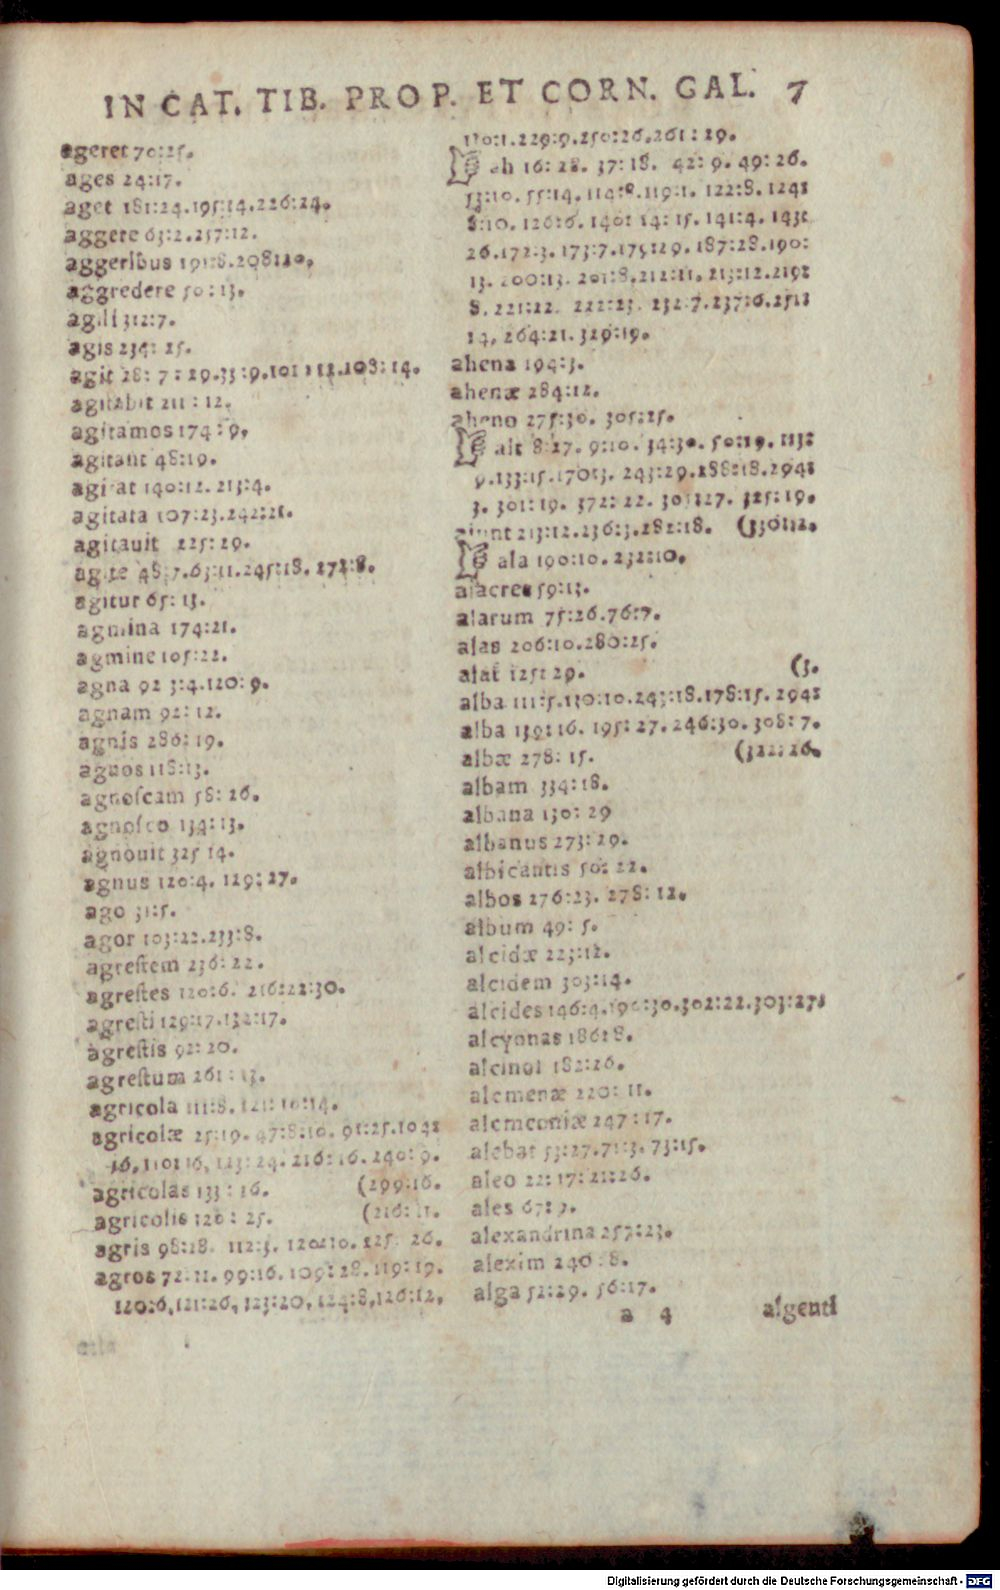 IN CAT. TIB. PROP. ET CORN. GAL. 7
ageret 70:25.
ages 24:17.
aget 181:24.195:14.226:24.
aggere 63:2.257:12.
aggeribus 191:8.208:10.
aggredere 50:13.
agili 312:7.
agis 234: 25.
agit 28: 7: 29.33:9.101:12.108:14.
agitabit 211: 12.
agitamos 174:9.
agitant 48:19.
agitat 140:12. 213:4.
agitata 107:23.242:21.
agitauit 225: 29.
agite 48:7.63:11.245:18. 272:8.
agitur 65: 13.
agmina 174:21.
agmine 105:22.
agna 92 3:4.120: 9.
agnam 92: 12.
agnis 286: 19.
agnos 118:13.
agnoſcam 58: 26.
agnoſco 134:13.
agnouit 325 14.
agnus 120:4. 129:27.
ago 31:5.
agor 103:22.233:8.
agreſtem 236: 22.
agreſtes 120:6. 216:22:30.
agreſti 129:17.132:17.
agreſtis 92: 20.
agreſtum 261: 13.
agricola 111:8. 121: 10:14.
agricolæ 25:19. 47:8:10. 91:25.104:
16.110:16. 123: 24. 216:16. 240: 9.
agricolas 133: 16. (299:18.
agricolis 120: 25. (216: 11.
agris 98:18. 112:3. 120:10. 125: 26.
agros 72:11. 99:16. 109: 28. 119: 19.
120:6,121:26, 123:20, 124:8,126:12,
170:1.229:9.250:26.261: 29.
ah 16: 28. 37: 18. 42: 9. 49: 26.
53:10. 55:14. 114:8.119:1. 122:8. 124:
8:10. 126:6. 140: 14: 15. 141:4. 143:
26.172:3. 173:7.175:29. 187:28.190:
13. 200:13. 201:8.212:11. 213:12.219:
8. 221:22. 222:23. 232:7.237:6.251:
14, 264:21. 329:19.
ahena 194:3.
ahenæ 284:12.
aheno 275:30. 305:25.
ait 8:27. 9:10. 34:30. 50:19. 113:
9.133:15.170:3. 243:29.288:18.294:
3. 301: 19. 372: 22. 303:27. 325: 19.
aiunt 213:12.236:3.282:18. (330:12.
ala 190:10. 232:10.
alacres 59:13.
alarum 75:26.76:7.
alas 206:10.280:25.
alat 125: 29. (3.
alba 111:5.130:10.243:18.178:15. 294:
alba 139:16. 195: 27. 246:30. 308: 7.
albæ 278: 15. (322:26.
albam 334:18.
albana 130: 29
albanus 273: 29.
albicantis 50: 22.
albos 276:23. 278: 12.
album 49: 5.
alcidæ 223:12.
alcidem 303:14.
alcides 146:4.190:30.302:22.303:27:
alcyonas 186:8.
alcinoi 182:26.
alcmenæ 220: 11.
alcmeoniæ 247:17.
alebat 53:27.71:3. 73:15.
aleo 22: 17: 21:26.
ales 67:9.
alexandrina 257:23.
alexim 240:8.
alga 52:29. 56:17.
a 4 algenti
Digitalisierung gefördert durch die Deutsche Forschungsgemeinschaft - DFG